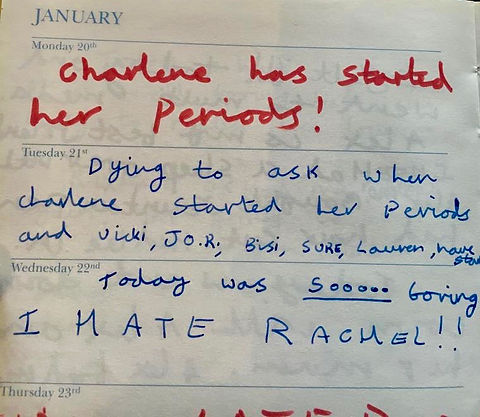 JANUARY
Monday 20th
Charlene has started
her Periods!
Tuesday 21st
Dying to ask when
charlene started her Periods
and Vicki, JO.R, Bisi, SURE, Lauren, have
Wednesday 22nd
Today was Sooooo Boring
I HATE RACHEL!!
Thursday 23rd